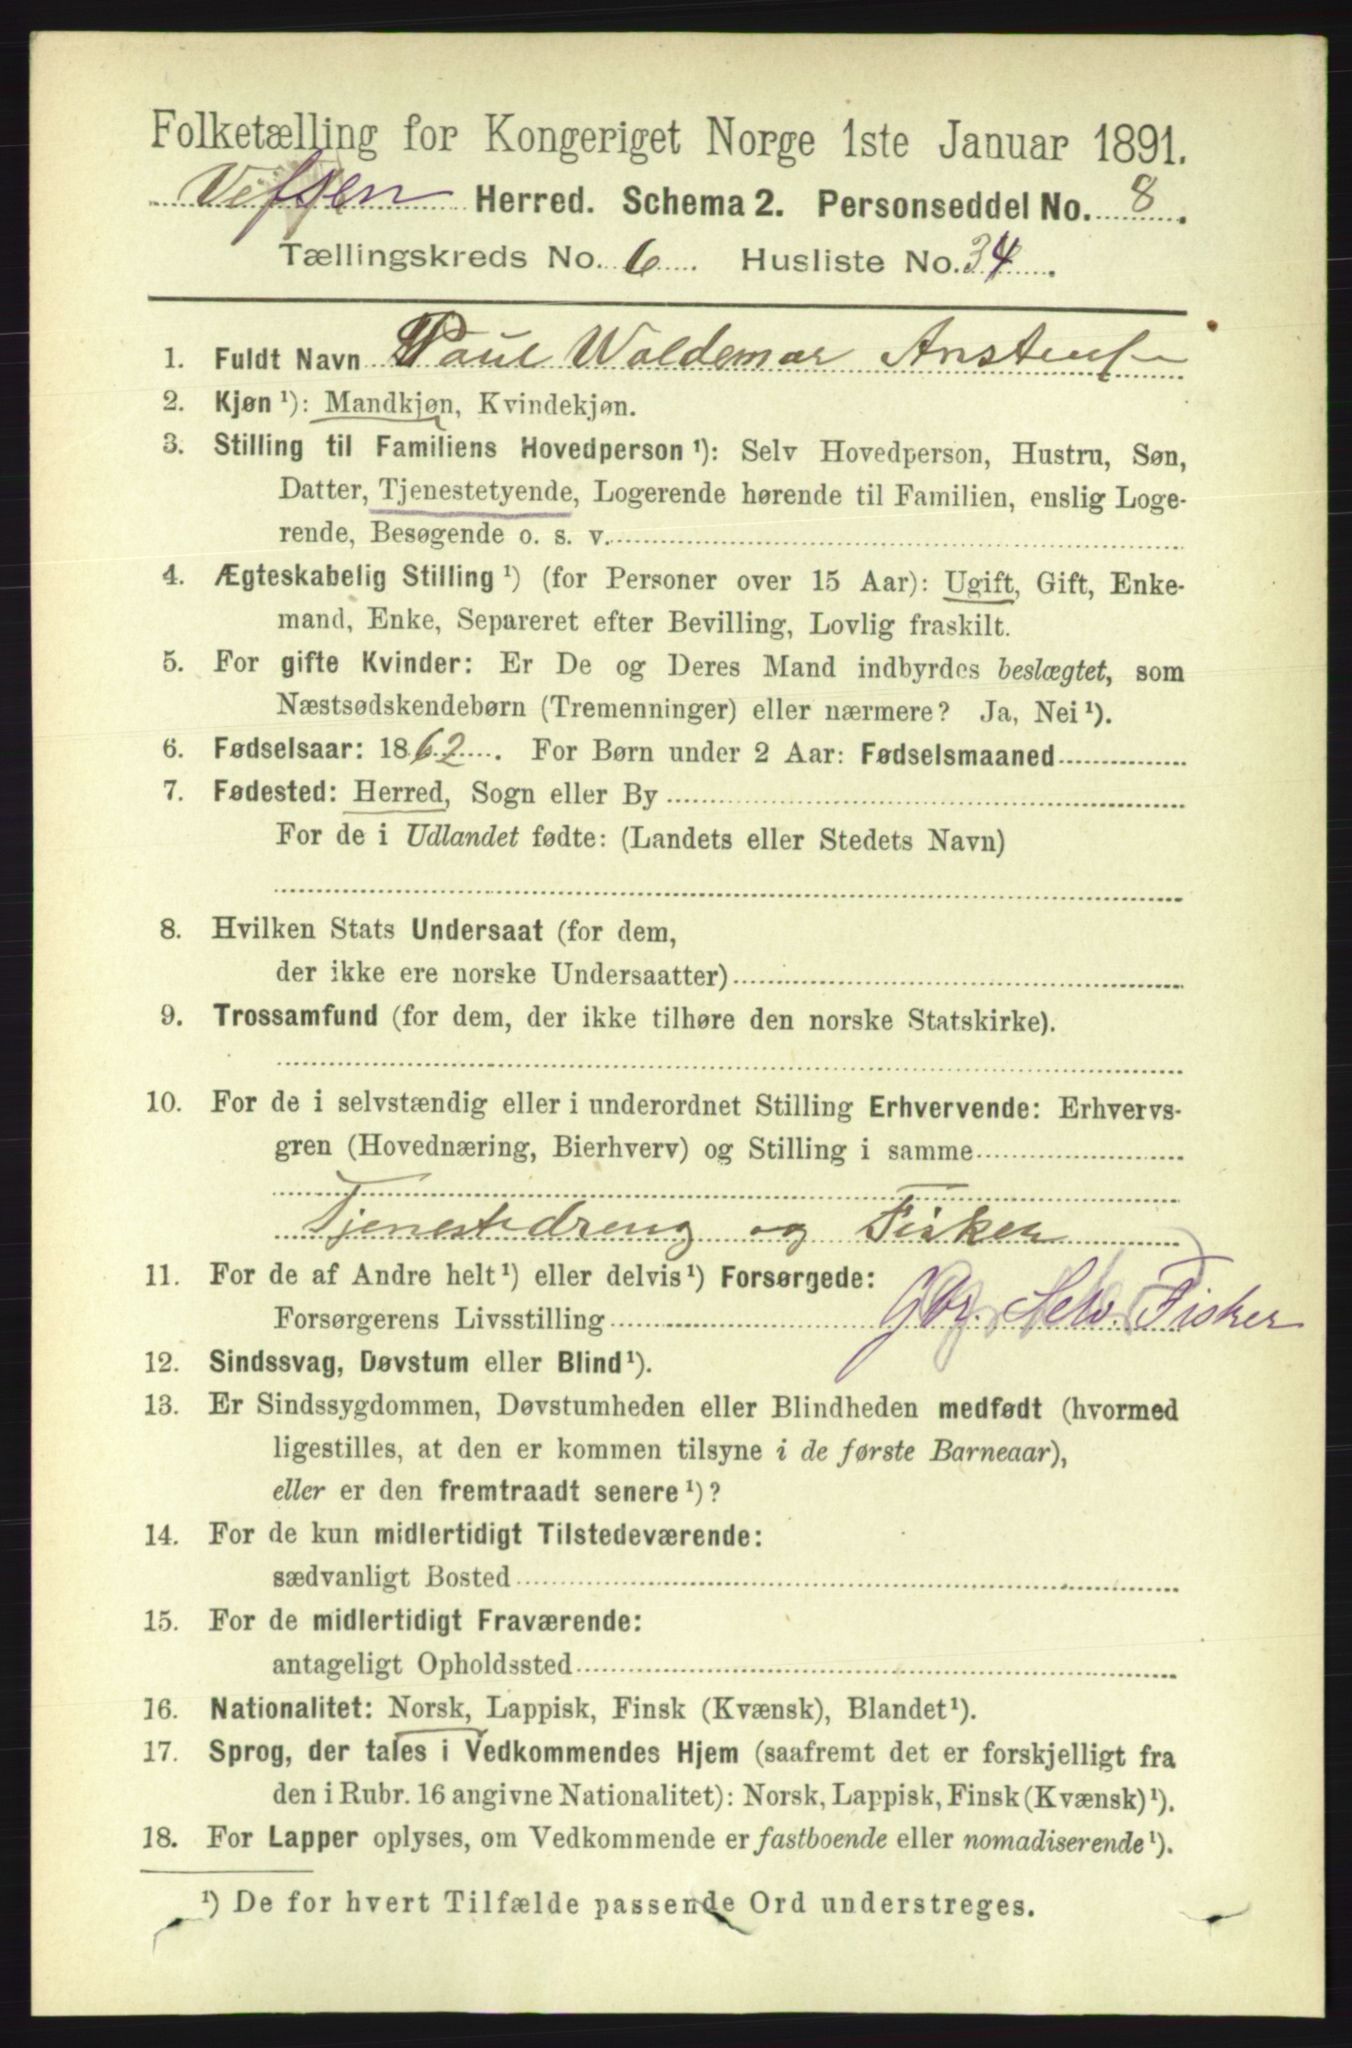 Folketælling for Kongeriget Norge 1ste Januar 1891.
Vefsen Herred. Schema 2. Personseddel No. 8.
Tællingskreds No. 6. Husliste No. 34.
1. Fuldt Navn Paul Waldemar
2. Kjøn ¹): Mandkjøn, Kvindekjøn.
3. Stilling til Familiens Hovedperson ¹): Selv Hovedperson, Hustru, Søn,
Datter, Tjenestetyende, Logerende hørende til Familien, enslig Loge-
rende, Besøgende o. s. v.
4. Ægteskabelig Stilling ¹) (for Personer over 15 Aar): Ugift, Gift, Enke-
mand, Enke, Separeret efter Bevilling, Lovlig fraskilt.
5. For gifte Kvinder: Er De og Deres Mand indbyrdes beslægtet, som
Næstsødskendebørn (Tremenninger) eller nærmere? Ja, Nei ¹).
6. Fødselsaar: 1862. For Børn under 2 Aar: Fødselsmaaned
7. Fødested: Herred, Sogn eller By
For de i Udlandet fødte: (Landets eller Stedets Navn)
8. Hvilken Stats Undersaat (for dem,
der ikke ere norske Undersaatter)
9. Trossamfund (for dem, der ikke tilhøre den norske Statskirke).
10. For de i selvstændig eller i underordnet Stilling Erhvervende: Erhvervs-
gren (Hovednæring, Bierhverv) og Stilling i samme
Tjenestedreng og Fisker
11. For de af Andre helt ¹) eller delvis ¹) Forsørgede:
Forsørgerens Livsstilling Gbr. Selv. Fisker
12. Sindssvag, Døvstum eller Blind ¹).
13. Er Sindssygdommen, Døvstumheden eller Blindheden medfødt (hvormed
ligestilles, at den er kommen tilsyne i de første Barneaar),
eller er den fremtraadt senere ¹)?
14. For de kun midlertidigt Tilstedeværende:
sædvanligt Bosted
15. For de midlertidigt Fraværende:
antageligt Opholdssted
16. Nationalitet: Norsk, Lappisk, Finsk (Kvænsk), Blandet ¹).
17. Sprog, der tales i Vedkommendes Hjem (saafremt det er forskjelligt fra
den i Rubr. 16 angivne Nationalitet): Norsk, Lappisk, Finsk (Kvænsk) ¹).
18. For Lapper oplyses, om Vedkommende er fastboende eller nomadiserende ¹).
¹) De for hvert Tilfælde passende Ord understreges.